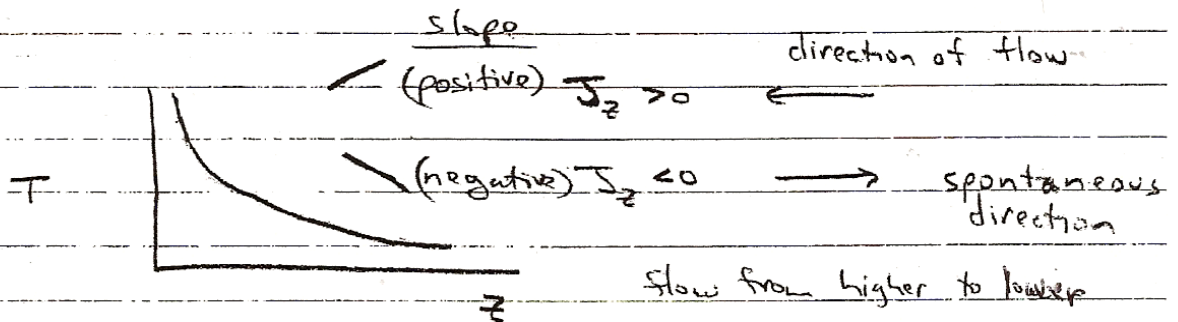 slope
direction of flow
(positive) J_z >0 ←
T
(negative) J_z <0 → spontaneous
direction
flow from higher to lower
z